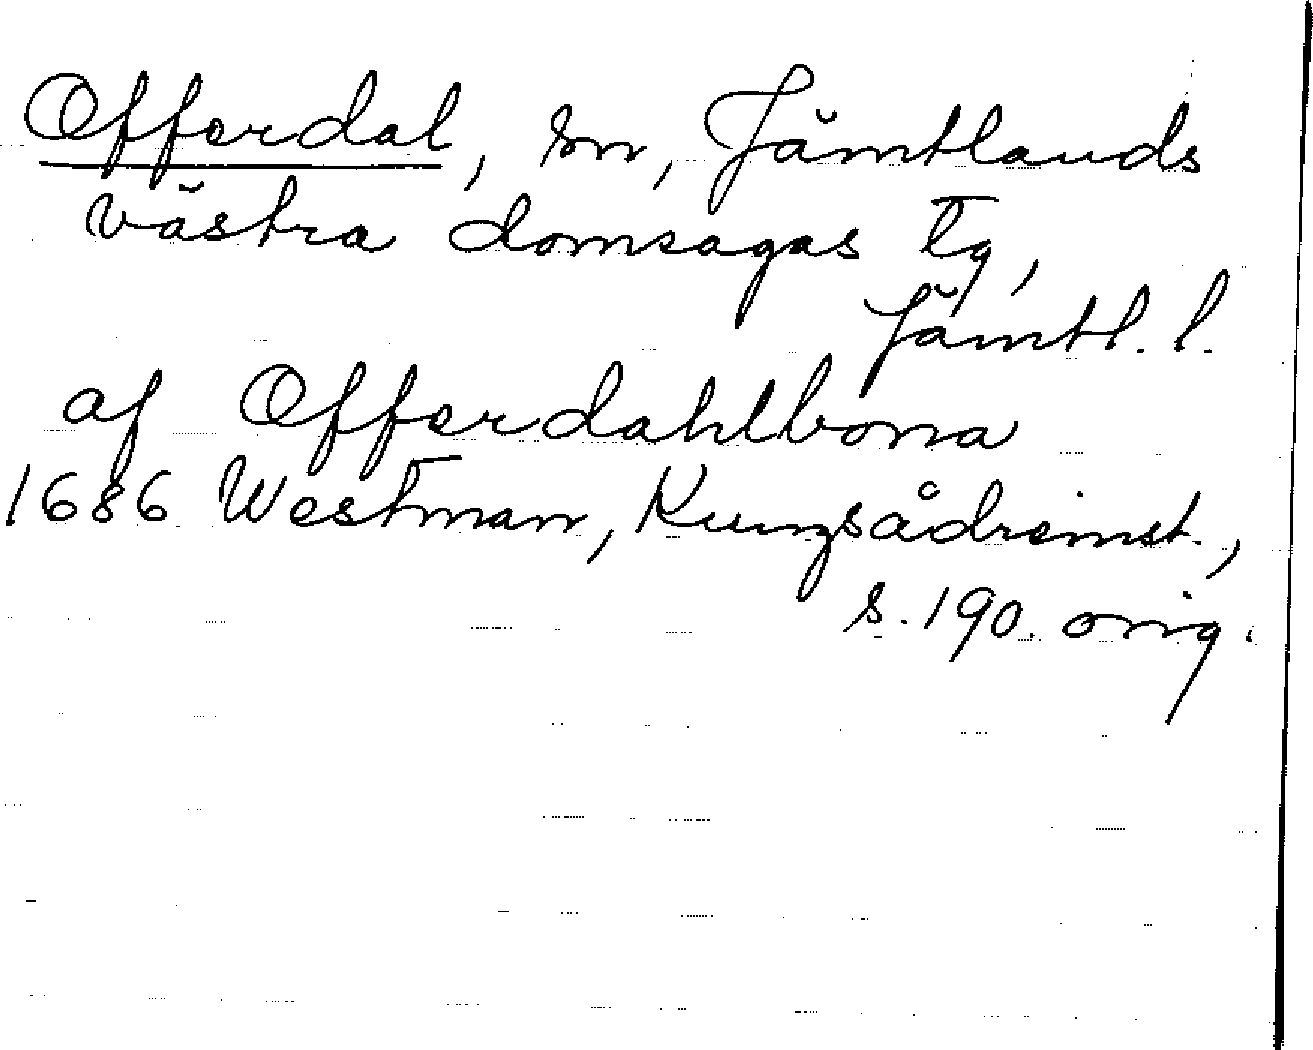 Offerdal, sn, Jämtlands
västra domsagas tg,
Jämtl. l.
af Offerdahlbona
1686 Westman, Kungsådrainst.,
s. 190. orig.